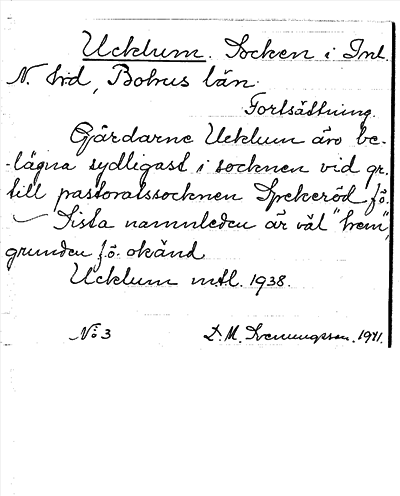 Ucklum. Socken i Inl.
N. hrd, Bohus län.
Fortsättning.
Gårdarne Ucklum äro be-
-lägna sydligast i socknen vid gr.
till pastoratssocknen Spekeröd fö.
— Sista namnleden är väl "hem",
grunden fö. okänd
Ucklum mtl. 1938.
No 3 D. M. Svenungsson. 1941.